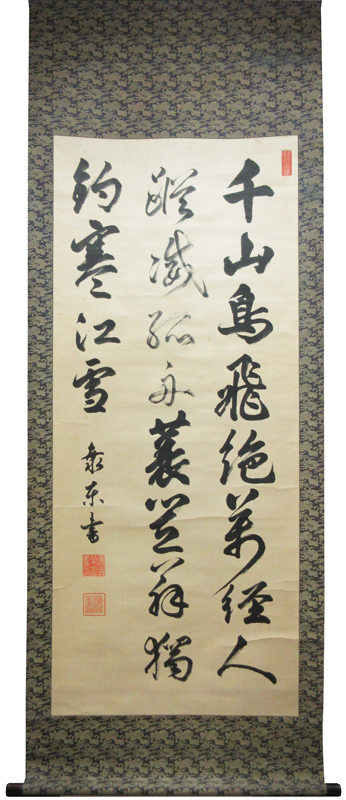 千山鳥飛絶萬經人
蹤滅孤舟蓑笠翁獨
釣寒江雪
東書